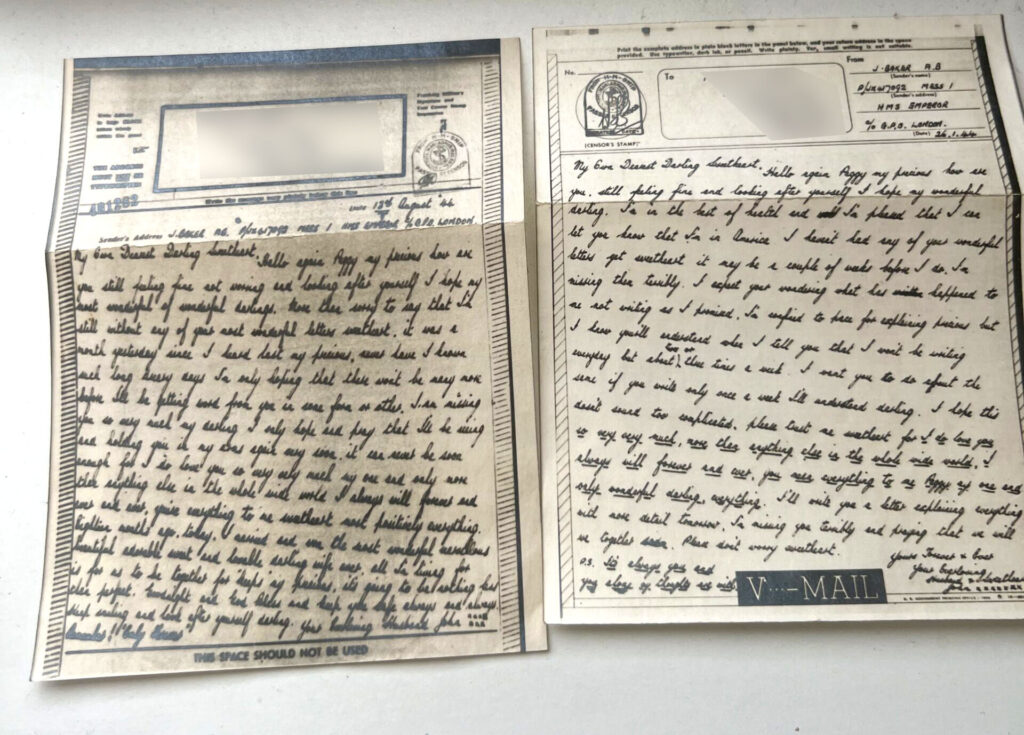 Write the message very plainly below this line
481262
Date 13th August 44
Sender's Address J. BAKER AB. P/JX417092 MESS 1 HMS EMPEROR c/o G.P.O. LONDON.
My Own Dearest Darling Sweetheart. Hello again Peggy my precious how are
you still feeling fine not worrying and looking after yourself I hope my
most wonderful of wonderful darlings. More than sorry to say that I'm
still without any of your most wonderful letters sweetheart, it was a
month yesterday since I heard last my precious, never have I known
such long dreary days I'm only hoping that there won't be many more
before I'll be getting word from you in some form or other. I am missing
you so very much my darling I only hope and pray that I'll be seeing
and holding you in my arms again very soon, it can never be soon
enough for I so love you so very very much my one and only more
than anything else in the whole wide world I always will forever and
ever and ever, you're everything to me sweetheart most positively everything.
Eighteen months ago, today, I married and won the most wonderful marvellous
beautiful adorable sweet and lovable darling wife ever all I'm living for
is for us to be together for keeps my precious, it's going to be nothing less
than perfect. Goodnight and God bless and keep you safe always and always.
Keep smiling and look after yourself darling. Your Everloving Husband John
Remember!!
THIS SPACE SHOULD NOT BE USED
Print the complete address in plain block letters in the panel below, and your return address in the space
provided. Use typewriter, dark ink, or pencil. Write plainly. Very small writing is not suitable.
No.
To
From
J. BAKER A.B
(Sender's name)
P/JX417092 MESS 1
(Sender's address)
HMS EMPEROR
c/o G.P.O. LONDON.
(Date) 26.1.44
(CENSOR'S STAMP)
My Own Dearest Darling Sweetheart. Hello again Peggy my precious how are
you, still feeling fine and looking after yourself I hope my wonderful
darling. I'm in the best of health and I'm pleased that I can
let you know that I'm in America I haven't had any of your wonderful
letters yet sweetheart it may be a couple of weeks before I do. I'm
missing them terribly. I expect your wondering what has happened to
me not writing as I promised. I'm confined to space for explaining precious but
I know you'll understand when I tell you that I won't be writing
everyday but about two or three times a week. I want you to do about the
same if you write only once a week I'll understand darling. I hope this
doesn't sound too complicated, please trust me sweetheart for I do love you
so very very much, more than anything else in the whole wide world, I
always will forever and ever, you mean everything to me Peggy my one and
only wonderful darling, everything. I'll write you a letter explaining everything
with more detail tomorrow, I'm missing you terribly and praying that we will
be together soon. Please don't worry sweetheart.
Yours Forever & Ever
Your Everloving
Husband & Sweetheart
John xxxxxxx
P.S. It's always you and
you alone my thoughts are with
V···—MAIL